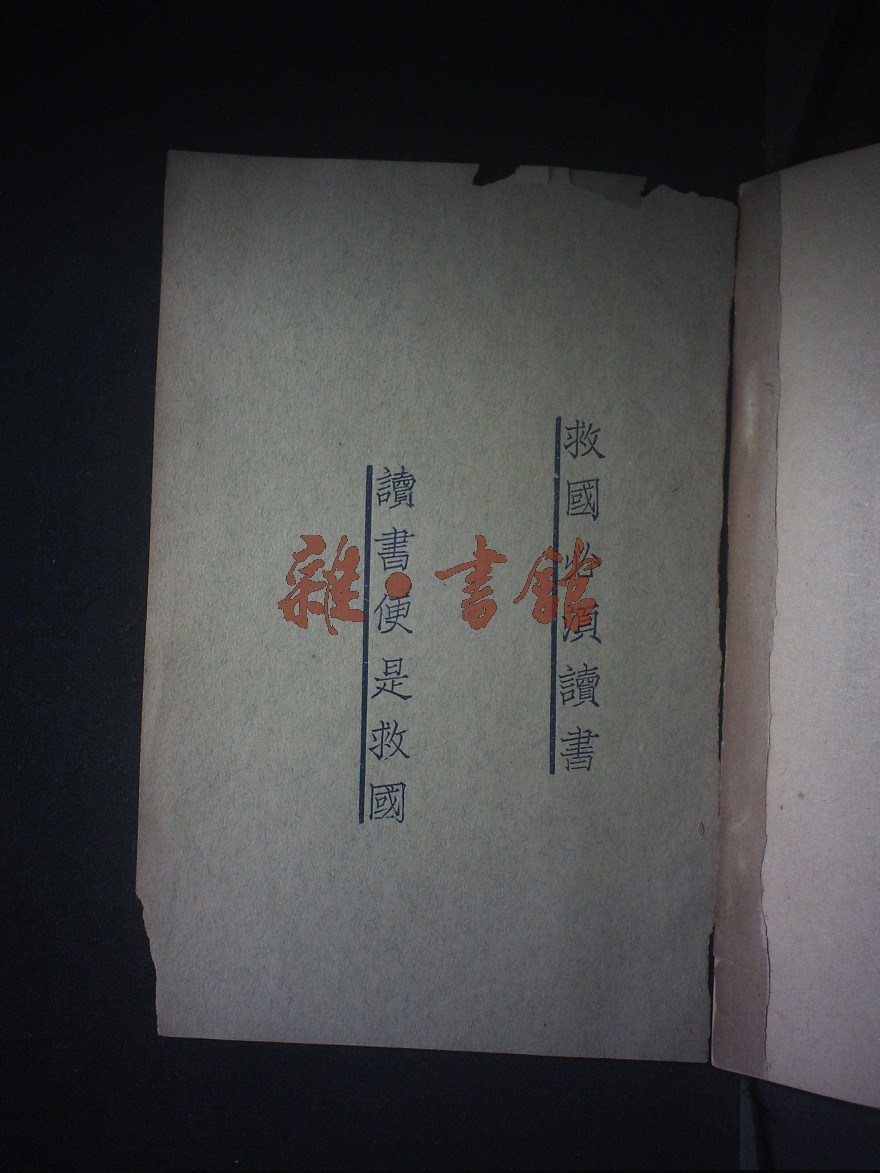 救國必須讀書
讀書便是救國
雜·書館